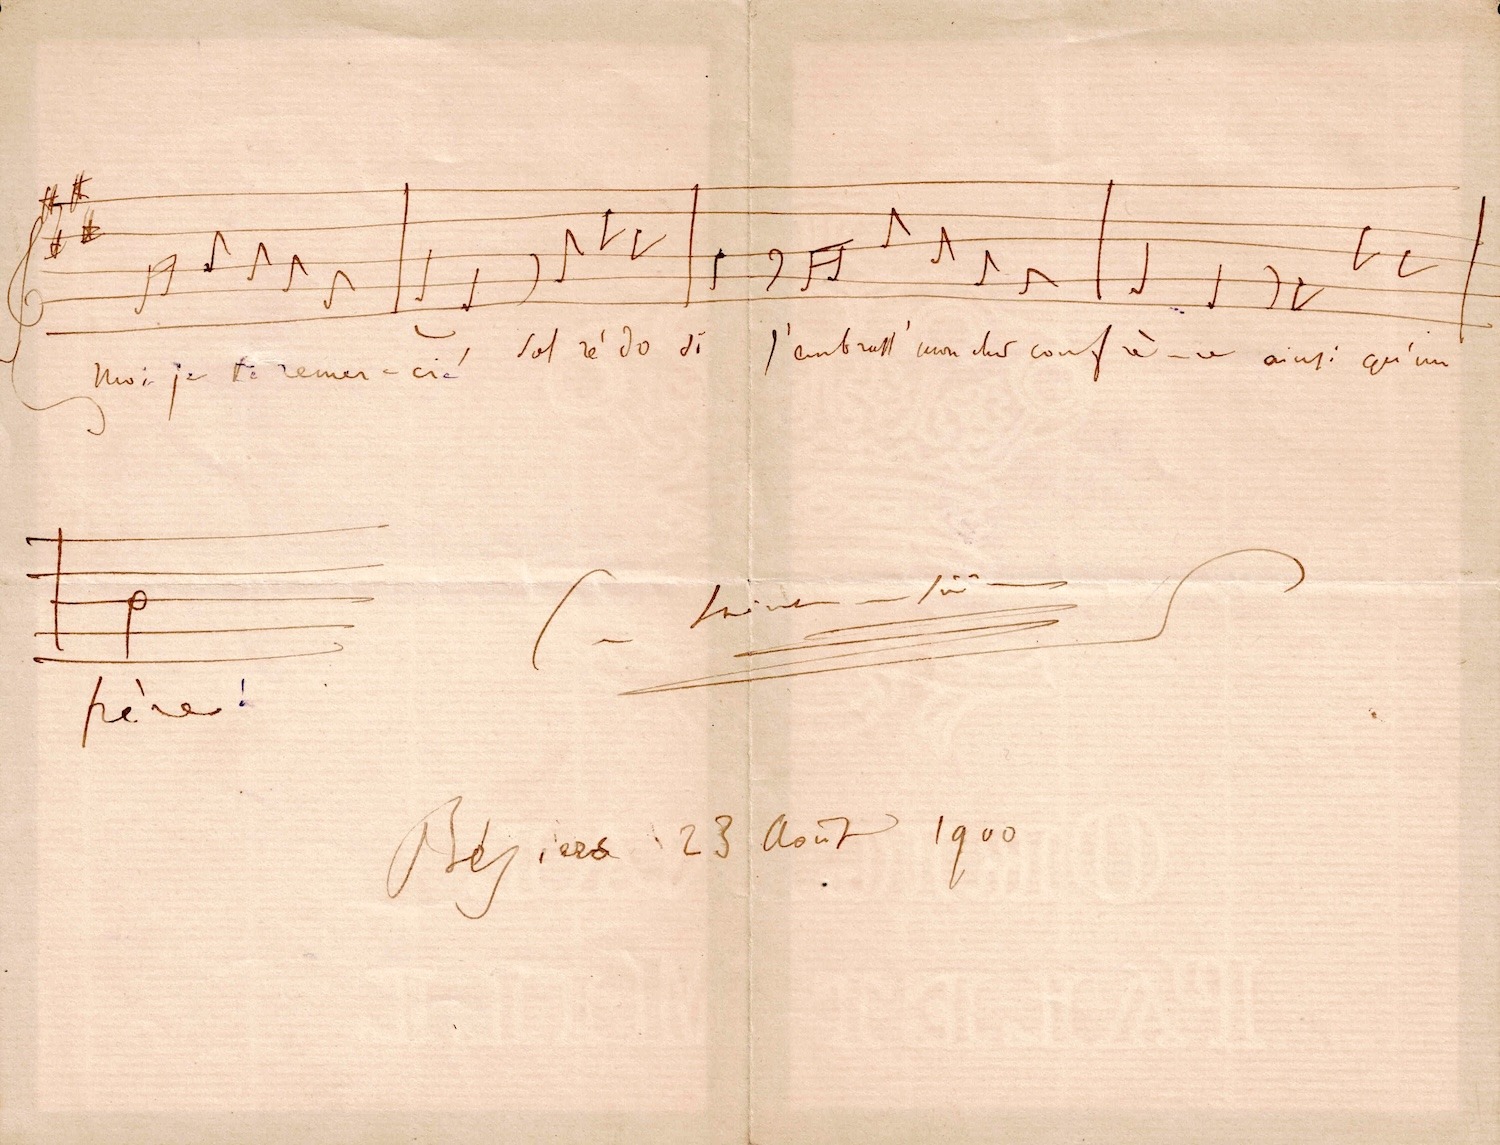 Moi je te remer-cie sol ré do si J'embrass' mon cher confrè-re ainsi qu'un
frère!
Béziers 23 Août 1900